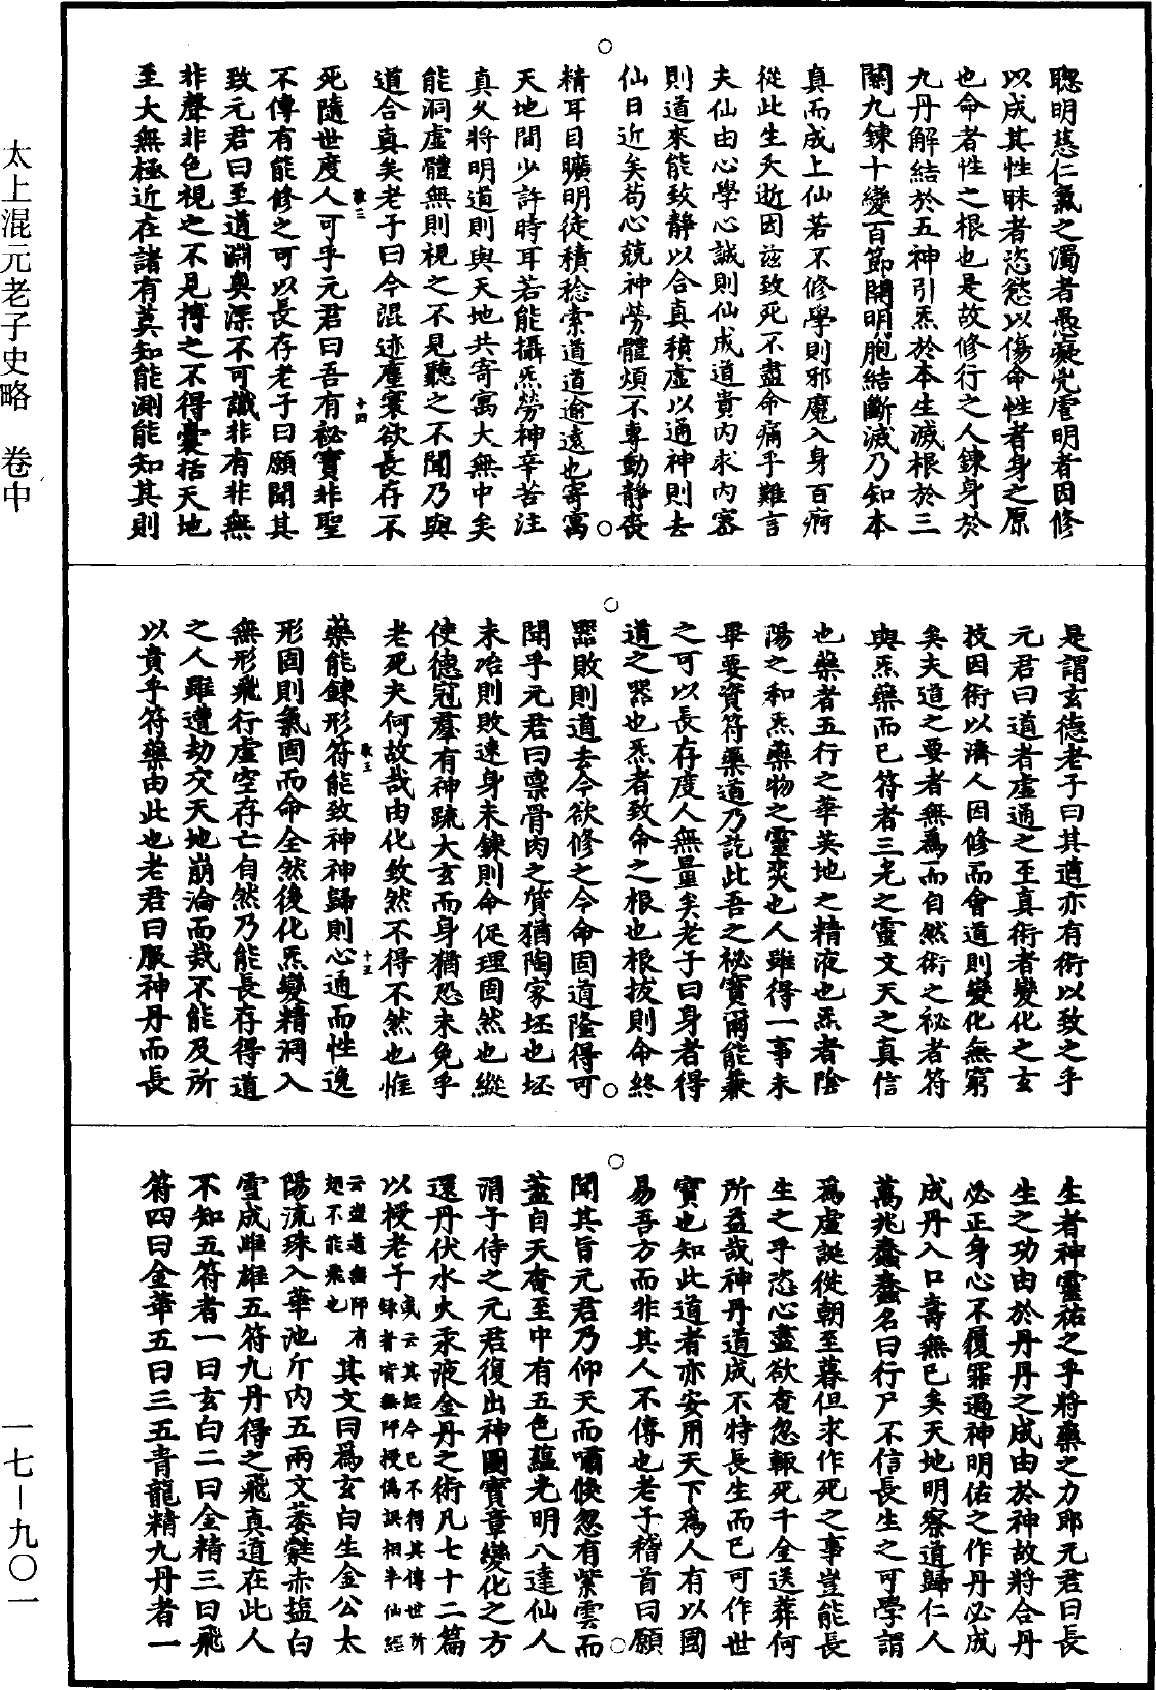 聰明慈仁氣之濁者愚癡兇虐明者因修
以成其性昧者恣慾以傷命性者身之原
也命者性之根也是故修行之人鍊身於
九丹解結於五神引炁於本生滅根於三
關九鍊十變百節開明胞結斷滅乃知本
真而成上仙若不修學則邪魔入身百痾
從此生夭逝因茲致死不盡命痛乎難言
夫仙由心學心誠則仙成道貴內求內密
則道來能致靜以合真積虛以通神則去
仙日近矣苟心競神勞體煩不專動靜喪
精耳目曠明徒積稔索道道逾遠也寄寓
天地間少許時耳若能攝炁勞神辛苦注
真久將明道則與天地共寄寓大無中矣
能洞虛體無則視之不見聽之不聞乃與
道合真矣老子曰今混迹塵寰欲長存不
敬三
十四
死隨世度人可乎元君曰吾有祕寶非聖
不傳有能修之可以長存老子曰願聞其
致元君曰至道淵奧深不可識非有非無
非聲非色視之不見摶之不得囊括天地
至大無極近在諸有莫知能測能知其則
是謂玄德老子曰其道亦有術以致之乎
元君曰道者虛通之至真術者變化之玄
技因術以濟人因修而會道則變化無窮
矣夫道之要者無為而自然術之秘者符
與炁藥而已符者三光之靈文天之真信
也藥者五行之華英地之精液也炁者陰
陽之和炁藥物之靈爽也人雖得一事未
畢要資符藥道乃訖此吾之祕寶爾能兼
之可以長存度人無量矣老子曰身者得
道之器也炁者致命之根也根拔則命終
器敗則道去今欲修之令命固道隆得可
聞乎元君曰稟骨肉之質猶陶家坯也坯
未冶則敗速身未鍊則命促理固然也縱
使德冠羣有神疏大玄而身猶恐未免乎
老死夫何故哉由化致然不得不然也惟
敬三
十五
藥能鍊形符能致神神歸則心通而性逸
形固則氣固而命全然後化炁變精洞入
無形飛行虛空存亡自然乃能長存得道
之人雖遭劫交天地崩淪而災不能及所
以貴乎符藥由此也老君曰服神丹而長
生者神靈祐之乎將藥之力耶元君曰長
生之功由於丹丹之成由於神故將合丹
必正身心不履罪過神明佑之作丹必成
成丹入口壽無已矣天地明察道歸仁人
萬兆蠢蠢名曰行尸不信長生之可學謂
為虛誕從朝至暮但求作死之事豈能長
生之乎恣心盡欲奄忽輒死千金送葬何
所益哉神丹道成不特長生而已可作世
寶也知此道者亦安用天下為人有以國
易吾方而非其人不傳也老子稽首曰願
聞其旨元君乃仰天而嘯倏忽有紫雲而
蓋自天奄至中有五色蘊光明八達仙人
涓子侍之元君復出神圖寶章變化之方
還丹伏水火汞液金丹之術凡七十二篇
以授老子或云其經今已不得其傳世所錄者皆無師授偽誤相半仙經
云盜道無師有翅不能飛也其文曰為玄白生金公太
陽流珠入華池斤內五兩文萎蕤赤鹽白
雪成雌雄五符九丹得之飛真道在此人
不知五符者一曰玄白二曰金精三曰飛
符四曰金華五曰三五青龍精九丹者一
太上混元老子史略 卷中
一七—九〇一